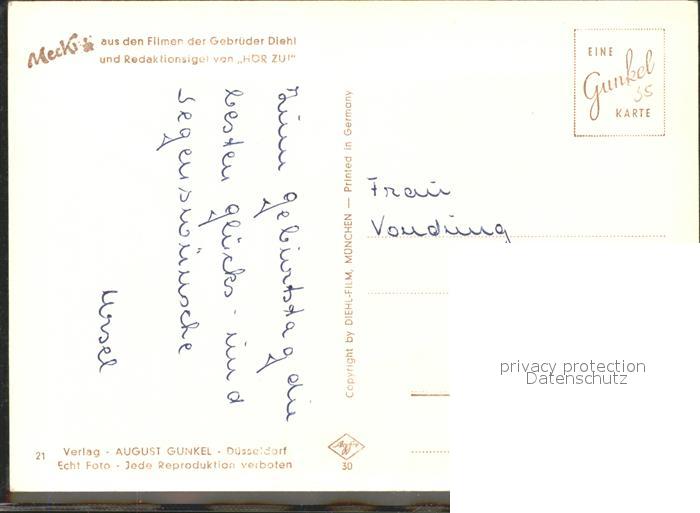 Mecki aus den Filmen der Gebrüder Diehl
und Redaktionsigel von „HÖR ZU!"
Zum Geburtstag die
besten Glücks- und
Segenswünsche
Ursel
21 Verlag · AUGUST GUNKEL · Düsseldorf
Echt Foto · Jede Reproduktion verboten
Copyright by DIEHL-FILM, MÜNCHEN — Printed in Germany
Agfa
30
EINE
Gunkel
35
KARTE
Frau
Vondung
privacy protection
Datenschutz